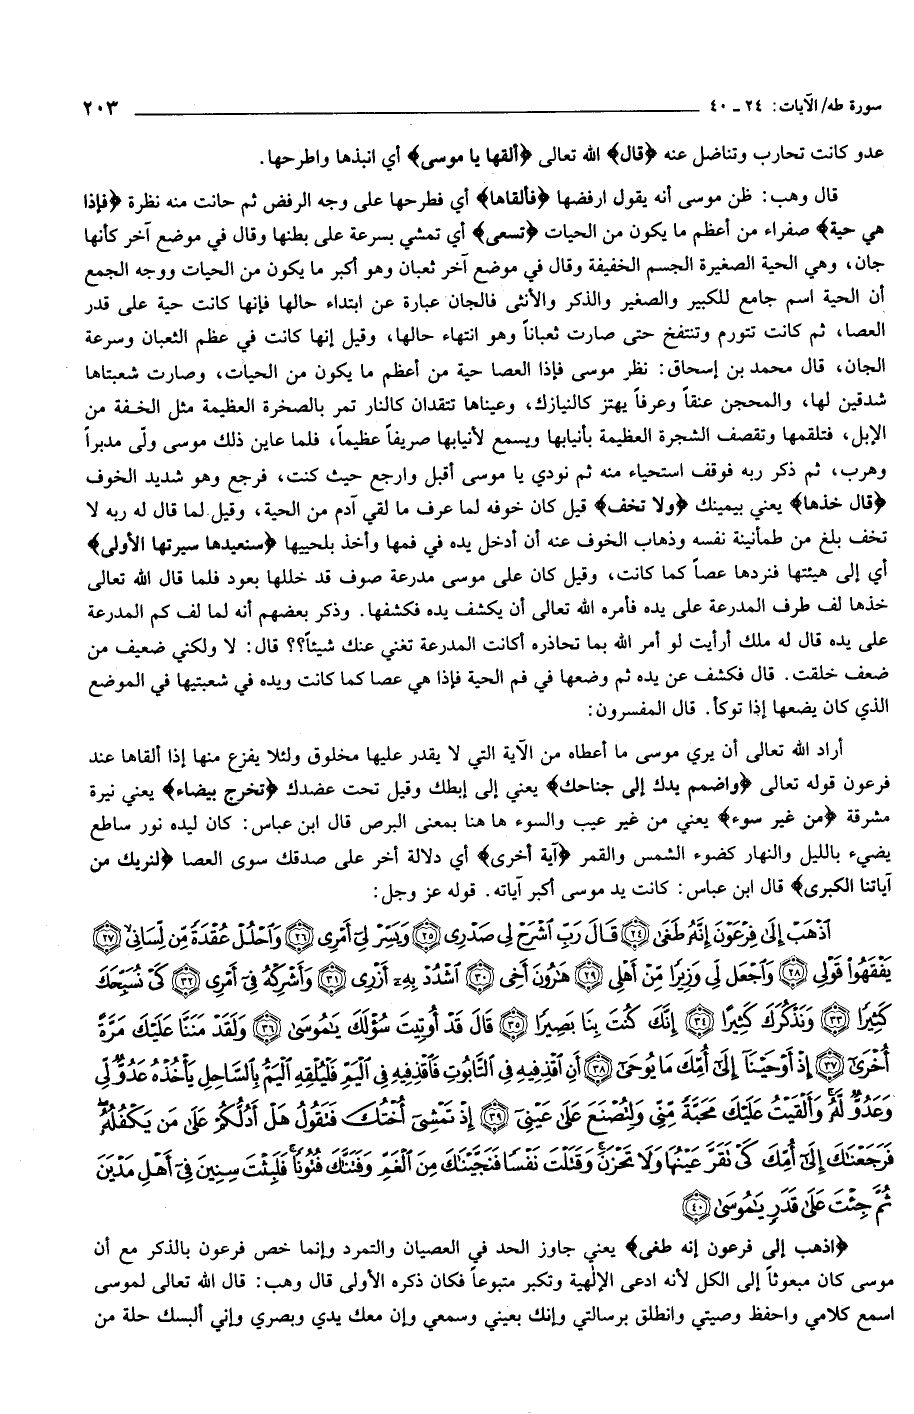 سورة طه/ الآيات: ٢٤ ـ ٤٠ ٢٠٣
عدو كانت تحارب وتناضل عنه ﴿قال﴾ الله تعالى ﴿ألقها يا موسى﴾ أي انبذها واطرحها.
قال وهب: ظن موسى أنه يقول ارفضها ﴿فألقاها﴾ أي فطرحها على وجه الرفض ثم حانت منه نظرة ﴿فإذا
هي حية﴾ صفراء من أعظم ما يكون من الحيات ﴿تسعى﴾ أي تمشي بسرعة على بطنها وقال في موضع آخر كأنها
جان، وهي الحية الصغيرة الجسم الخفيفة وقال في موضع آخر ثعبان وهو أكبر ما يكون من الحيات ووجه الجمع
أن الحية اسم جامع للكبير والصغير والذكر والأنثى فالجان عبارة عن ابتداء حالها فإنها كانت حية على قدر
العصا، ثم كانت تتورم وتنتفخ حتى صارت ثعباناً وهو انتهاء حالها، وقيل إنها كانت في عظم الثعبان وسرعة
الجان، قال محمد بن إسحاق: نظر موسى فإذا العصا حية من أعظم ما يكون من الحيات، وصارت شعبتاها
شدقين لها، والمحجن عنقاً وعرفاً يهتز كالنيازك، وعيناها تتقدان كالنار تمر بالصخرة العظيمة مثل الخـفة من
الإبل، فتلقمها وتقصف الشجرة العظيمة بأنيابها ويسمع لأنيابها صريفاً عظيماً، فلما عاين ذلك موسى ولّى مدبراً
وهرب، ثم ذكر ربه فوقف استحياء منه ثم نودي يا موسى أقبل وارجع حيث كنت، فرجع وهو شديد الخوف
﴿قال خذها﴾ يعني بيمينك ﴿ولا تخف﴾ قيل كان خوفه لما عرف ما لقي آدم من الحية، وقيل لما قال له ربه لا
تخف بلغ من طمأنينة نفسه وذهاب الخوف عنه أن أدخل يده في فمها وأخذ بلحييها ﴿سنعيدها سيرتها الأولى﴾
أي إلى هيئتها فنردها عصاً كما كانت، وقيل كان على موسى مدرعة صوف قد خللها بعود فلما قال الله تعالى
خذها لف طرف المدرعة على يده فأمره الله تعالى أن يكشف يده فكشفها. وذكر بعضهم أنه لما لف كم المدرعة
على يده قال له ملك أرأيت لو أمر الله بما تحاذره أكانت المدرعة تغني عنك شيئاً؟؟ قال: لا ولكني ضعيف من
ضعف خلقت. قال فكشف عن يده ثم وضعها في فم الحية فإذا هي عصا كما كانت ويده في شعبتيها في الموضع
الذي كان يضعها إذا توكأ. قال المفسرون:
أراد الله تعالى أن يري موسى ما أعطاه من الآية التي لا يقدر عليها مخلوق ولئلا يفزع منها إذا ألقاها عند
فرعون قوله تعالى ﴿واضمم يدك إلى جناحك﴾ يعني إلى إبطك وقيل تحت عضدك ﴿تخرج بيضاء﴾ يعني نيرة
مشرقة ﴿من غير سوء﴾ يعني من غير عيب والسوء ها هنا بمعنى البرص قال ابن عباس: كان ليده نور ساطع
يضيء بالليل والنهار كضوء الشمس والقمر ﴿آية أخرى﴾ أي دلالة أخر على صدقك سوى العصا ﴿لنريك من
آياتنا الكبرى﴾ قال ابن عباس: كانت يد موسى أكبر آياته. قوله عز وجل:
ٱذْهَبْ إِلَىٰ فِرْعَوْنَ إِنَّهُۥ طَغَىٰ ﴿٢٤﴾ قَالَ رَبِّ ٱشْرَحْ لِى صَدْرِى ﴿٢٥﴾ وَيَسِّرْ لِىٓ أَمْرِى ﴿٢٦﴾ وَٱحْلُلْ عُقْدَةً مِّن لِّسَانِى ﴿٢٧﴾
يَفْقَهُوا۟ قَوْلِى ﴿٢٨﴾ وَٱجْعَل لِّى وَزِيرًا مِّنْ أَهْلِى ﴿٢٩﴾ هَٰرُونَ أَخِى ﴿٣٠﴾ ٱشْدُدْ بِهِۦٓ أَزْرِى ﴿٣١﴾ وَأَشْرِكْهُ فِىٓ أَمْرِى ﴿٣٢﴾ كَىْ نُسَبِّحَكَ
كَثِيرًا ﴿٣٣﴾ وَنَذْكُرَكَ كَثِيرًا ﴿٣٤﴾ إِنَّكَ كُنتَ بِنَا بَصِيرًا ﴿٣٥﴾ قَالَ قَدْ أُوتِيتَ سُؤْلَكَ يَٰمُوسَىٰ ﴿٣٦﴾ وَلَقَدْ مَنَنَّا عَلَيْكَ مَرَّةً
أُخْرَىٰٓ ﴿٣٧﴾ إِذْ أَوْحَيْنَآ إِلَىٰٓ أُمِّكَ مَا يُوحَىٰٓ ﴿٣٨﴾ أَنِ ٱقْذِفِيهِ فِى ٱلتَّابُوتِ فَٱقْذِفِيهِ فِى ٱلْيَمِّ فَلْيُلْقِهِ ٱلْيَمُّ بِٱلسَّاحِلِ يَأْخُذْهُ عَدُوٌّ لِّى
وَعَدُوٌّ لَّهُۥ وَأَلْقَيْتُ عَلَيْكَ مَحَبَّةً مِّنِّى وَلِتُصْنَعَ عَلَىٰ عَيْنِىٓ ﴿٣٩﴾ إِذْ تَمْشِىٓ أُخْتُكَ فَتَقُولُ هَلْ أَدُلُّكُمْ عَلَىٰ مَن يَكْفُلُهُۥ
فَرَجَعْنَٰكَ إِلَىٰٓ أُمِّكَ كَىْ تَقَرَّ عَيْنُهَا وَلَا تَحْزَنَ وَقَتَلْتَ نَفْسًا فَنَجَّيْنَٰكَ مِنَ ٱلْغَمِّ وَفَتَنَّٰكَ فُتُونًا فَلَبِثْتَ سِنِينَ فِىٓ أَهْلِ مَدْيَنَ
ثُمَّ جِئْتَ عَلَىٰ قَدَرٍ يَٰمُوسَىٰ ﴿٤٠﴾
﴿اذهب إلى فرعون إنه طغى﴾ يعني جاوز الحد في العصيان والتمرد وإنما خص فرعون بالذكر مع أن
موسى كان مبعوثاً إلى الكل لأنه ادعى الإلٰهية وتكبر متبوعاً فكان ذكره الأولى قال وهب: قال الله تعالى لموسى
اسمع كلامي واحفظ وصيتي وانطلق برسالتي وإنك بعيني وسمعي وإن معك يدي وبصري وإني ألبسك حلة من